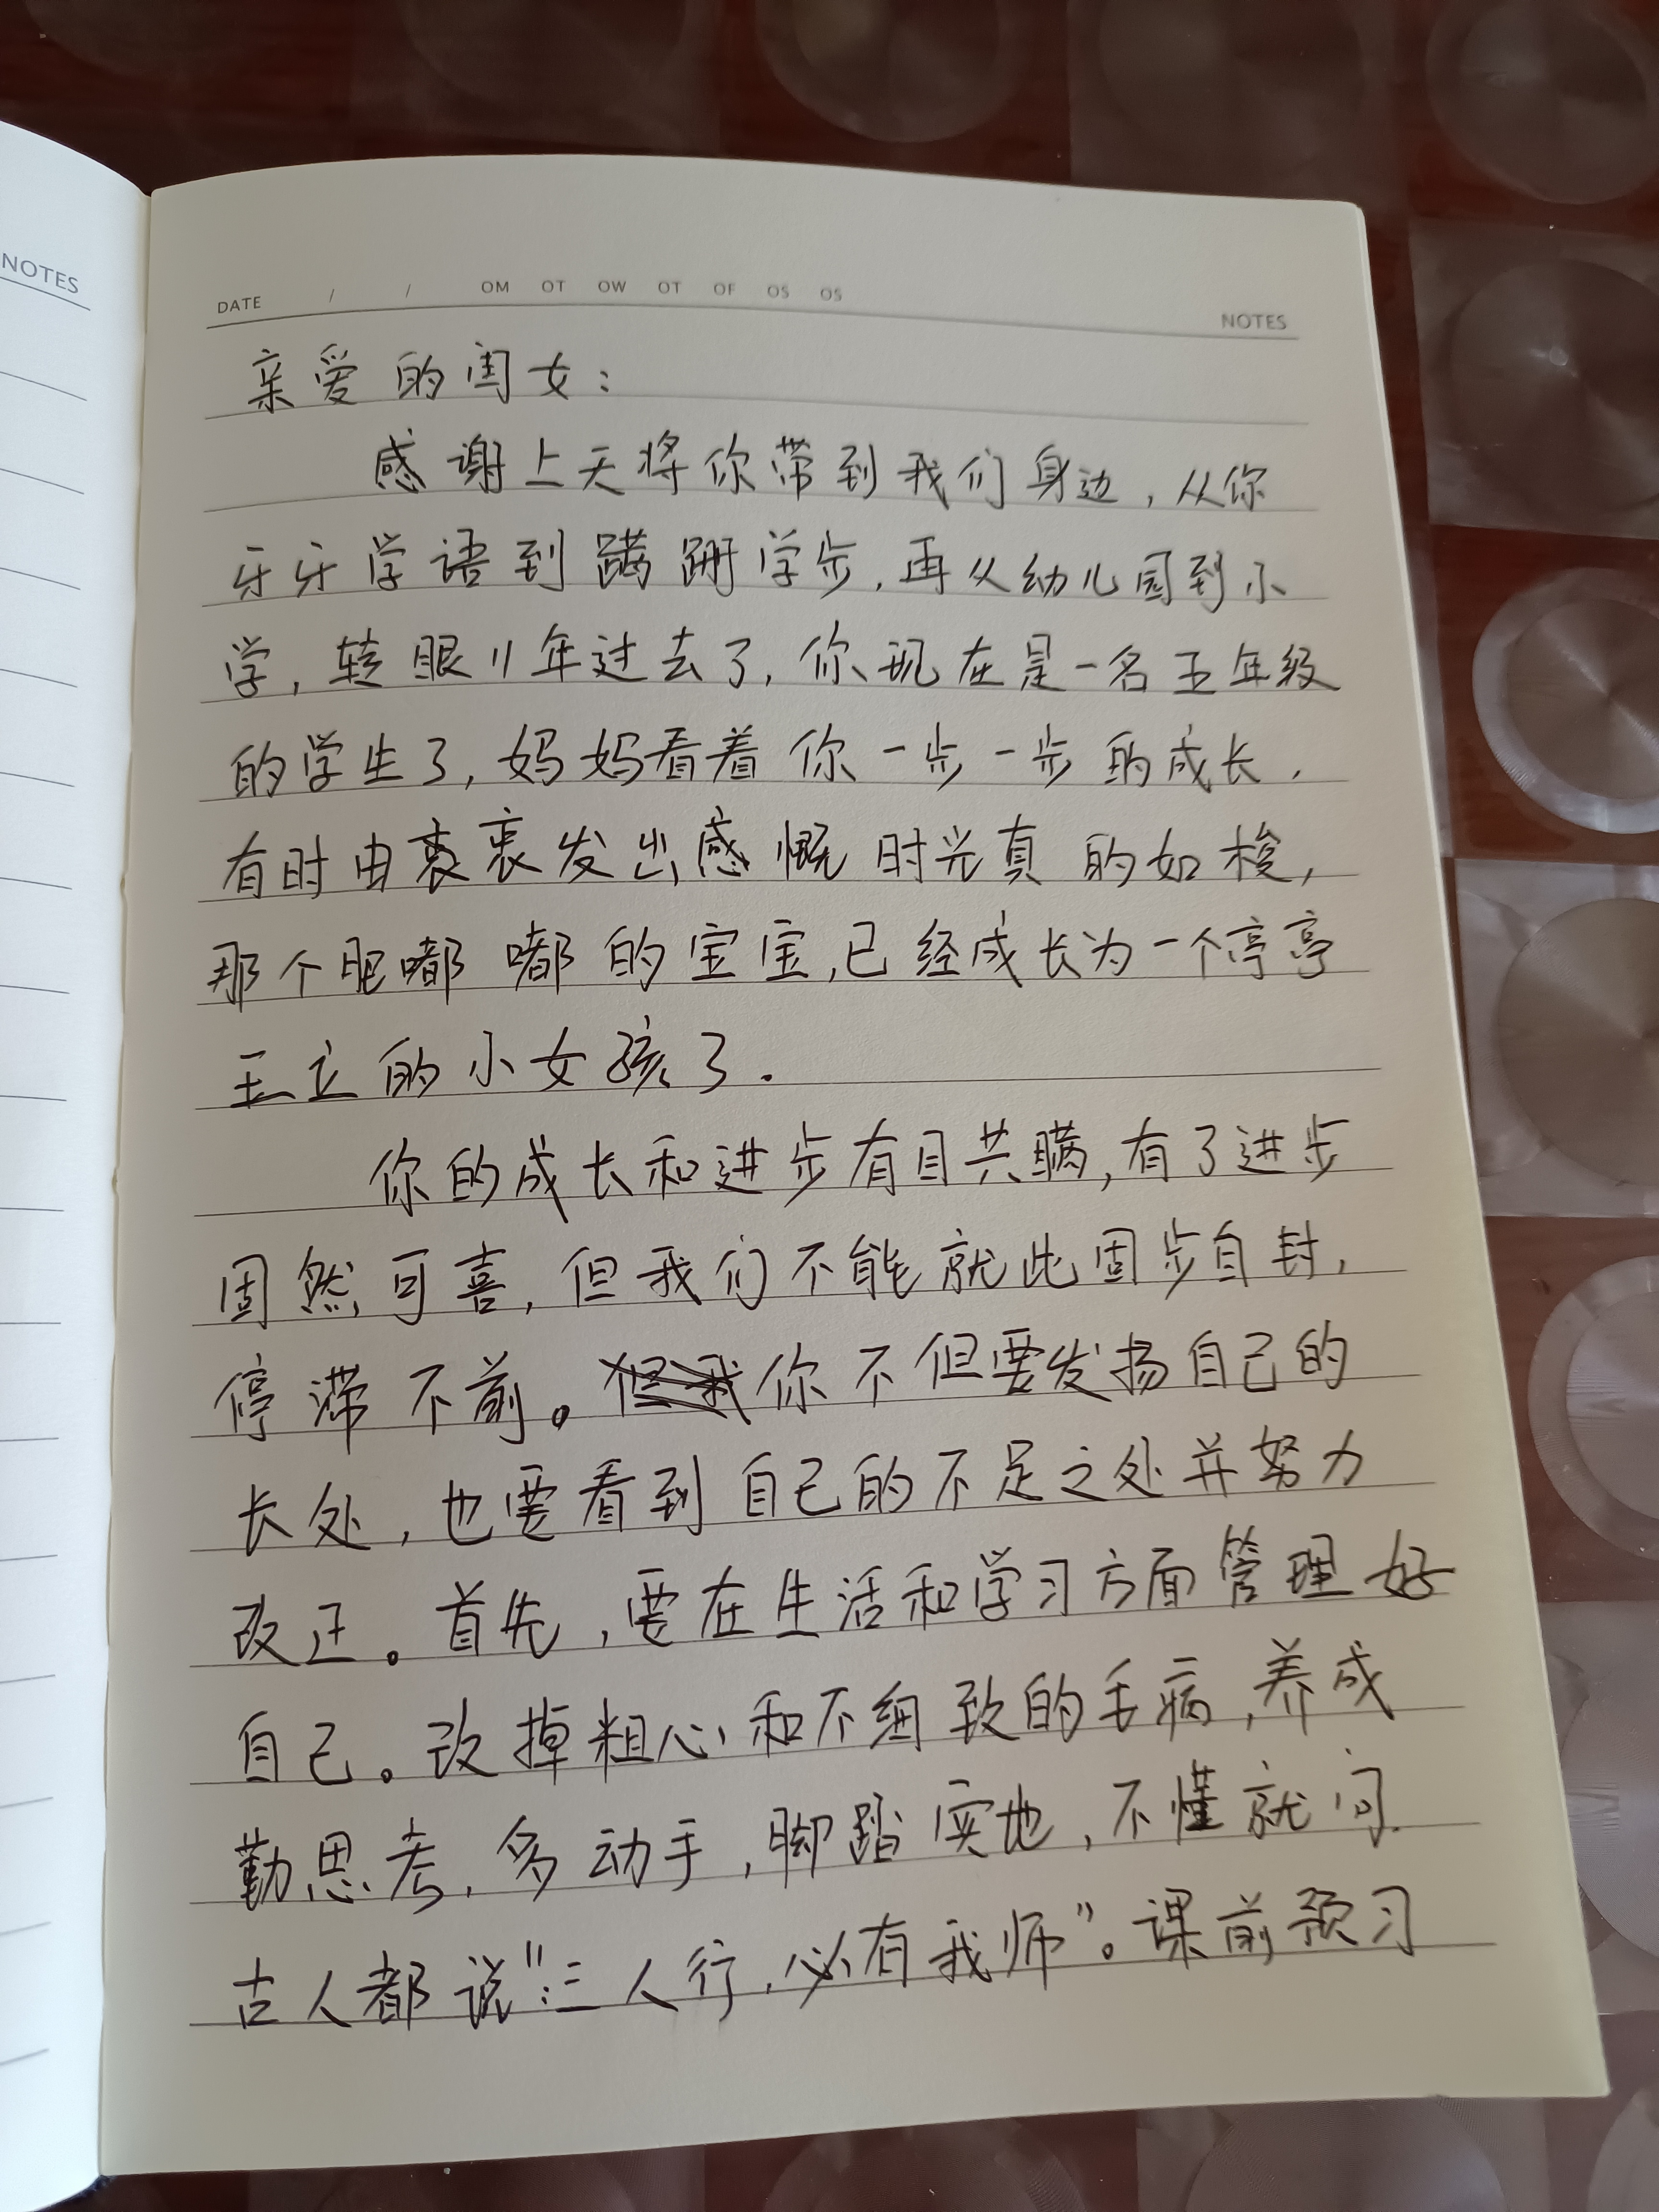 NOTES
DATE / / OM OT OW OT OF OS OS
NOTES
亲爱的闺女：
感谢上天将你带到我们身边，从你
牙牙学语到蹒跚学步，再从幼儿园到小
学，转眼11年过去了，你现在是一名五年级
的学生了，妈妈看着你一步一步的成长，
有时由衷衷发出感慨时光真的如梭，
那个肥嘟嘟的宝宝，已经成长为一个亭亭
玉立的小女孩了．
你的成长和进步有目共瞒，有了进步
固然可喜，但我们不能就此固步自封，
停滞不前。你不但要发扬自己的
长处，也要看到自己的不足之处并努力
改正。首先，要在生活和学习方面管理好
自己。改掉粗心和不细致的毛病，养成
勤思考，多动手，脚踏实地，不懂就问．
古人都说"：三人行，必有我师"。课前预习